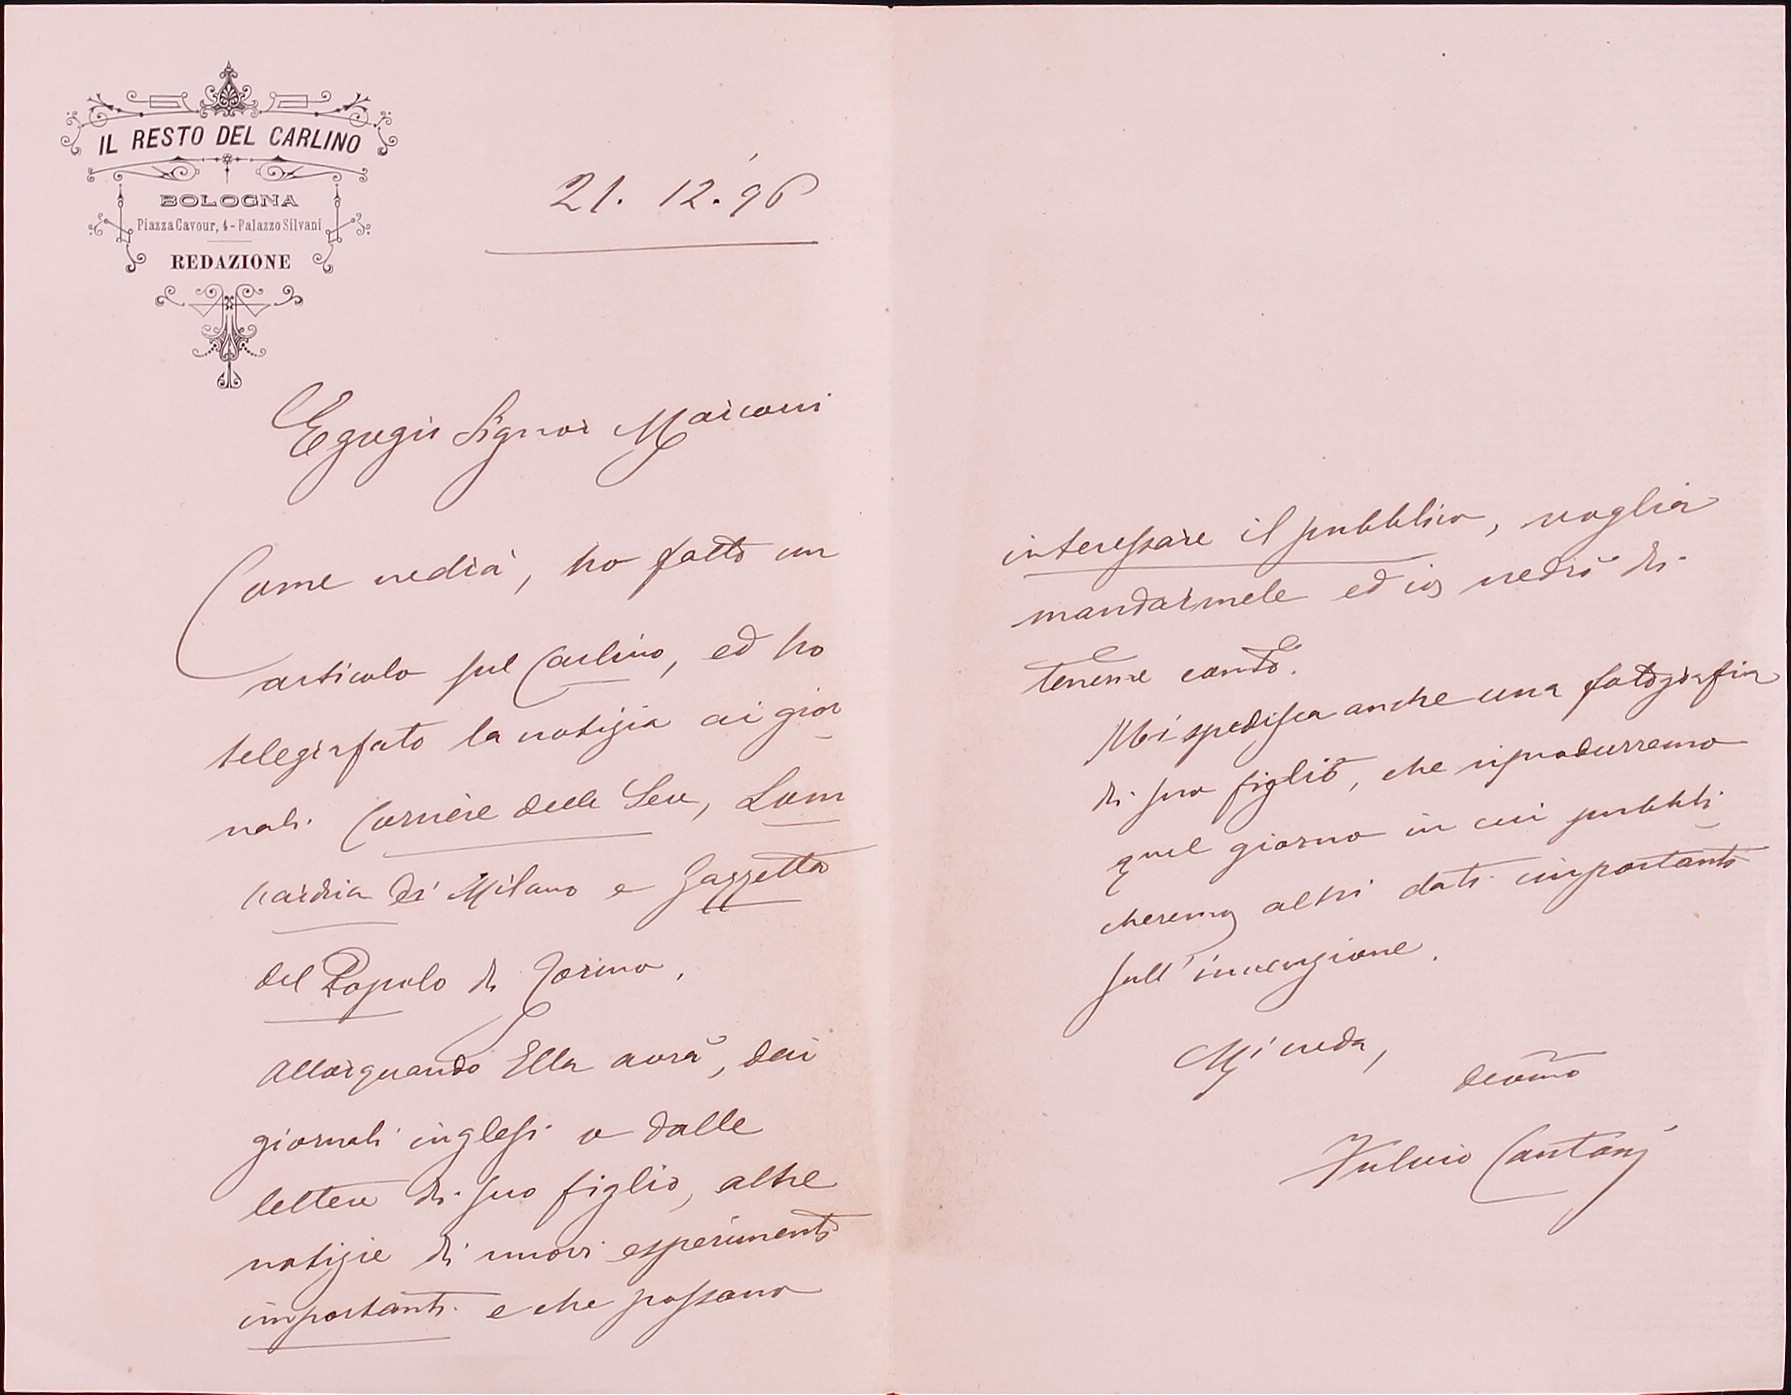 IL RESTO DEL CARLINO
BOLOGNA
Piazza Cavour, 4 - Palazzo Silvani
REDAZIONE
21. 12. 96
Egregio Signor Marconi
Come vedrà, ho fatto un
articolo sul Carlino, ed ho
telegrafato la notizia ai gior
nali Corriere della Sera, Lom
bardia di Milano e Gazzetta
del Popolo di Torino.
Allorquando Ella avrà, dai
giornali inglesi o dalle
lettere di suo figlio, altre
notizie di nuovi esperimenti
importanti e che possano
interessare il pubblico, voglia
mandarmele ed io vedrò di
tenerne conto.
Mi spedisca anche una fotografia
di suo figlio, che riprodurremo
quel giorno in cui pubbli
cheremo altri dati importanti
sull'invenzione.
Mi creda,
devmo
Fulvio Cantoni